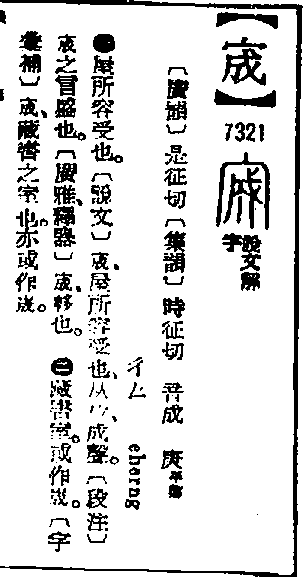 【宬】
7321
說文解字
〔廣韻〕是征切〔集韻〕時征切 音成 庚平聲
ㄔㄥ charng
㊀屋所容受也。〔說文〕宬、屋所容受也、从宀、成聲。〔段注〕
宬之言盛也。〔廣雅、釋器〕宬、㢋也。㊁藏書室。或作㞼。〔字
彙補〕宬、藏書之室也。亦或作㞼。